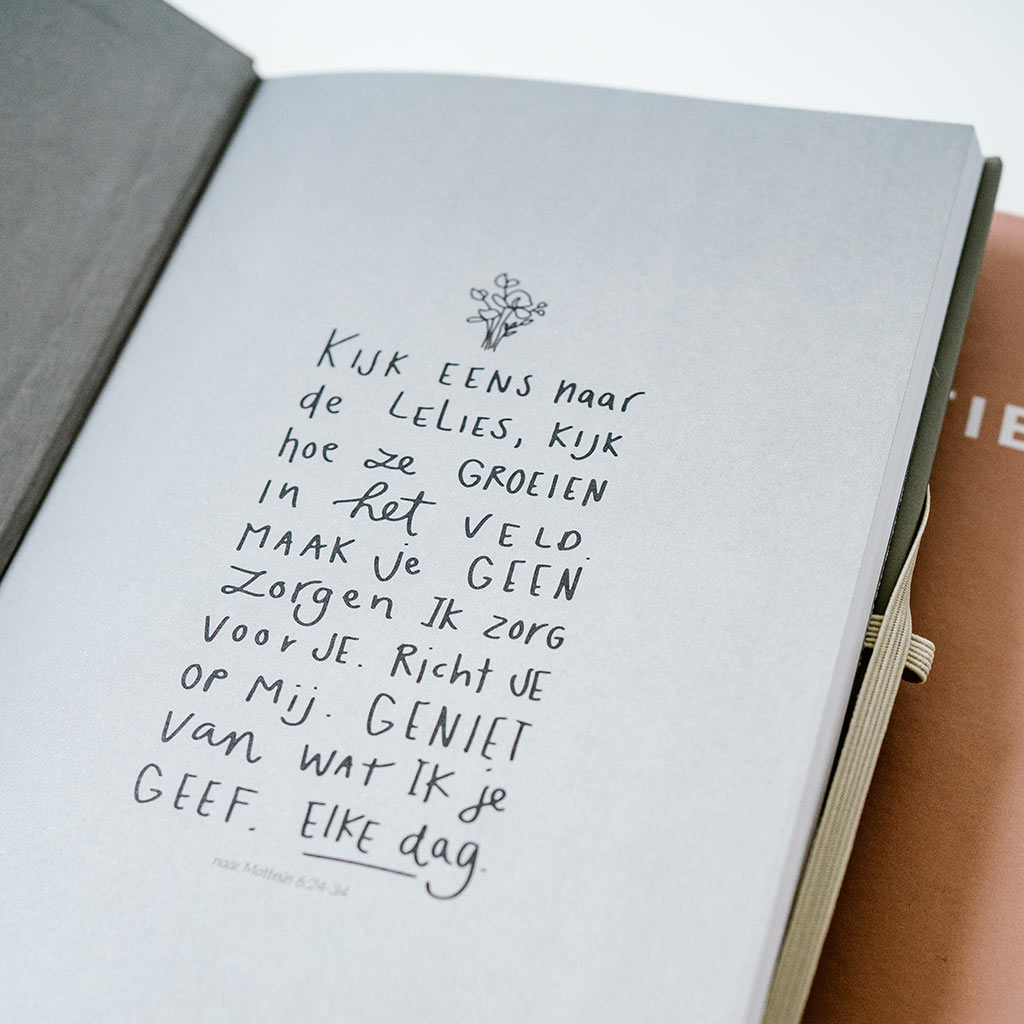 Kijk EENS naar
de LELIES, KIJK
hoe ze GROEIEN
in het VELD.
MAAK je GEEN
Zorgen IK zorg
voor JE. Richt JE
op Mij. GENIET
van wat IK je
GEEF. Elke dag.
naar Matteüs 6:24-34